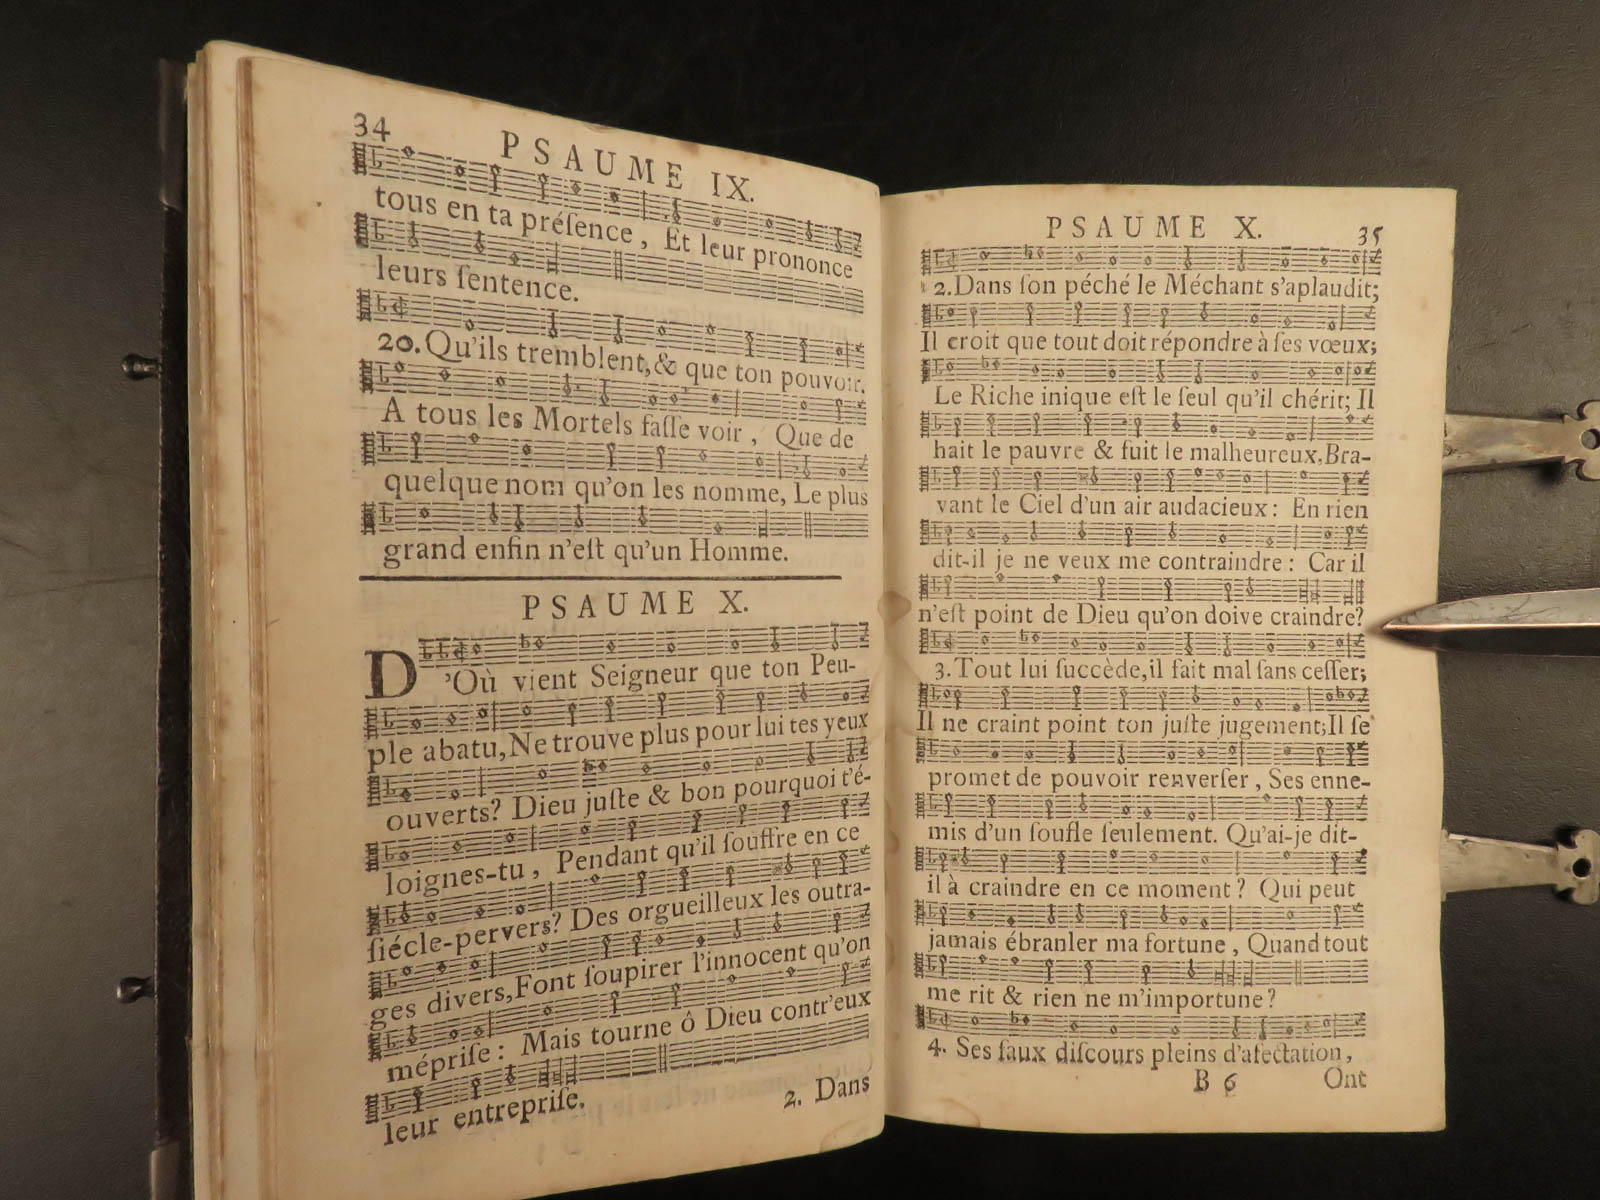 34
PSAUME IX.
tous en ta préſence, Et leur prononce
leurs ſentence.
20. Qu'ils tremblent, & que ton pouvoir.
A tous les Mortels faſſe voir, Que de
quelque nom qu'on les nomme, Le plus
grand enfin n'eſt qu'un Homme.
PSAUME X.
D'Où vient Seigneur que ton Peu-
ple abatu, Ne trouve plus pour lui tes yeux
ouverts? Dieu juſte & bon pourquoi t'é-
loignes-tu, Pendant qu'il ſouffre en ce
ſiécle-pervers? Des orgueilleux les outra-
ges divers, Font ſoupirer l'innocent qu'on
mépriſe: Mais tourne ô Dieu contr'eux
leur entrepriſe.
2. Dans
PSAUME X.
35
2. Dans ſon péché le Méchant s'aplaudit;
Il croit que tout doit répondre à ſes vœux;
Le Riche inique eſt le ſeul qu'il chérit; Il
hait le pauvre & fuit le malheureux, Bra-
vant le Ciel d'un air audacieux: En rien
dit-il je ne veux me contraindre: Car il
n'eſt point de Dieu qu'on doive craindre?
3. Tout lui ſuccède, il fait mal ſans ceſſer;
Il ne craint point ton juſte jugement; Il ſe
promet de pouvoir renverſer, Ses enne-
mis d'un ſoufle ſeulement. Qu'ai-je dit-
il à craindre en ce moment? Qui peut
jamais ébranler ma fortune, Quand tout
me rit & rien ne m'importune?
4. Ses faux diſcours pleins d'afectation,
B 6
Ont